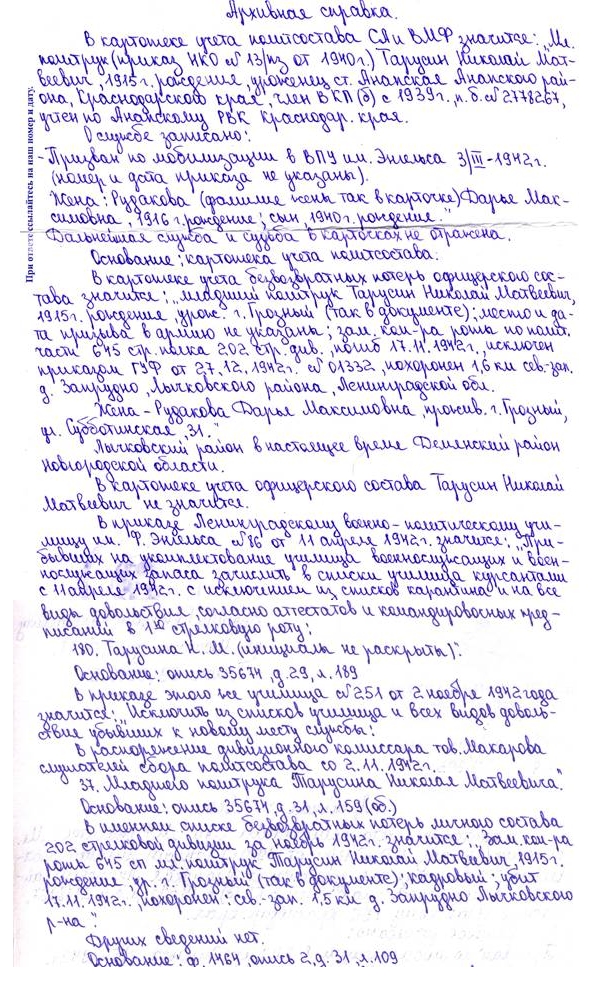 Архивная справка.
В картотеке учета политсостава СА и ВМФ значится: „Мл.
политрук (приказ НКО № 13/пз от 1940г.) Тарусин Николай Мат-
веевич, 1915 г. рождения, уроженец ст. Анапская Анапского рай-
она, Краснодарского края, член ВКП(б) с 1939г., п.б. № 2778267,
учтен по Анапскому РВК Краснодар. края.
О службе записано:
-Призван по мобилизации в ВПУ им. Энгельса 3/III-1942г.
(номер и дата приказа не указаны).
Жена: Рудакова (фамилие жены так в карточке) Дарья Мак-
симовна, 1916 г. рождение; сын, 1940г. рождение."
Дальнейшая служба и судьба в карточках не отражена.
Основание: картотека учета политсостава.
В картотеке учета безвозвратных потерь офицерского сос-
тава значится: „младший политрук Тарусин Николай Матвеевич,
1915г. рождения, урож. г. Грозный (так в документе); место и да-
та призыва в армию не указаны; зам. ком-ра роты по полит.
части 645 стр. полка 202 стр. див., погиб 17.11.1942г., исключен
приказом ГУФ от 27.12.1942г. № 01332, похоронен 1,6 км сев.-зап.
д. Запрудно, Лычковского района, Ленинградской обл.
Жена - Рудакова Дарья Максимовна, прожив. г. Грозный,
ул. Субботинская, 31."
Лычковский район в настоящее время Демянский район
Новгородской области.
В картотеке учета офицерского состава Тарусин Николай
Матвеевич не значится.
В приказе Ленинградскому военно-политическому учи-
лищу им. Ф. Энгельса №86 от 11 апреля 1942г. значится: „При-
бывших на укомплектование училища военнослужащих и воен-
нослужащих запаса зачислить в списки училища курсантами
с 11 апреля 1942г. с исключением из списков карантина и на все
виды довольствия, согласно аттестатов и командировочных пред-
писаний в 1ую стрелковую роту:
180. Тарусина Н. М. (инициалы не раскрыты)."
Основание: опись 35674, д.29, л.189
В приказе этого же училища №251 от 2 ноября 1942 года
значится: „Исключить из списков училища и всех видов доволь-
ствие убывших к новому месту службы:
В распоряжение дивизионного комиссара тов. Макарова
слушателей сбора политсостава со 2.11.1942г.
37. Младшего политрука Тарусина Николая Матвеевича."
Основание: опись 35674, д.31, л.159 (об.)
В именном списке безвозвратных потерь личного состава
202 стрелковой дивизии за ноябрь 1942г. значится: „Зам. ком-ра
роты 645 сп мл. политрук Тарусин Николай Матвеевич 1915г.
рождения, ур. г. Грозный (так в документе); кадровый; убит
17.11.1942г., похоронен: сев.-зап. 1,5 км д. Запрудно Лычковского
р-на".
Других сведений нет.
Основание: ф. 1464, опись 2, д.31, л.109
При ответе ссылайтесь на наш номер и дату.